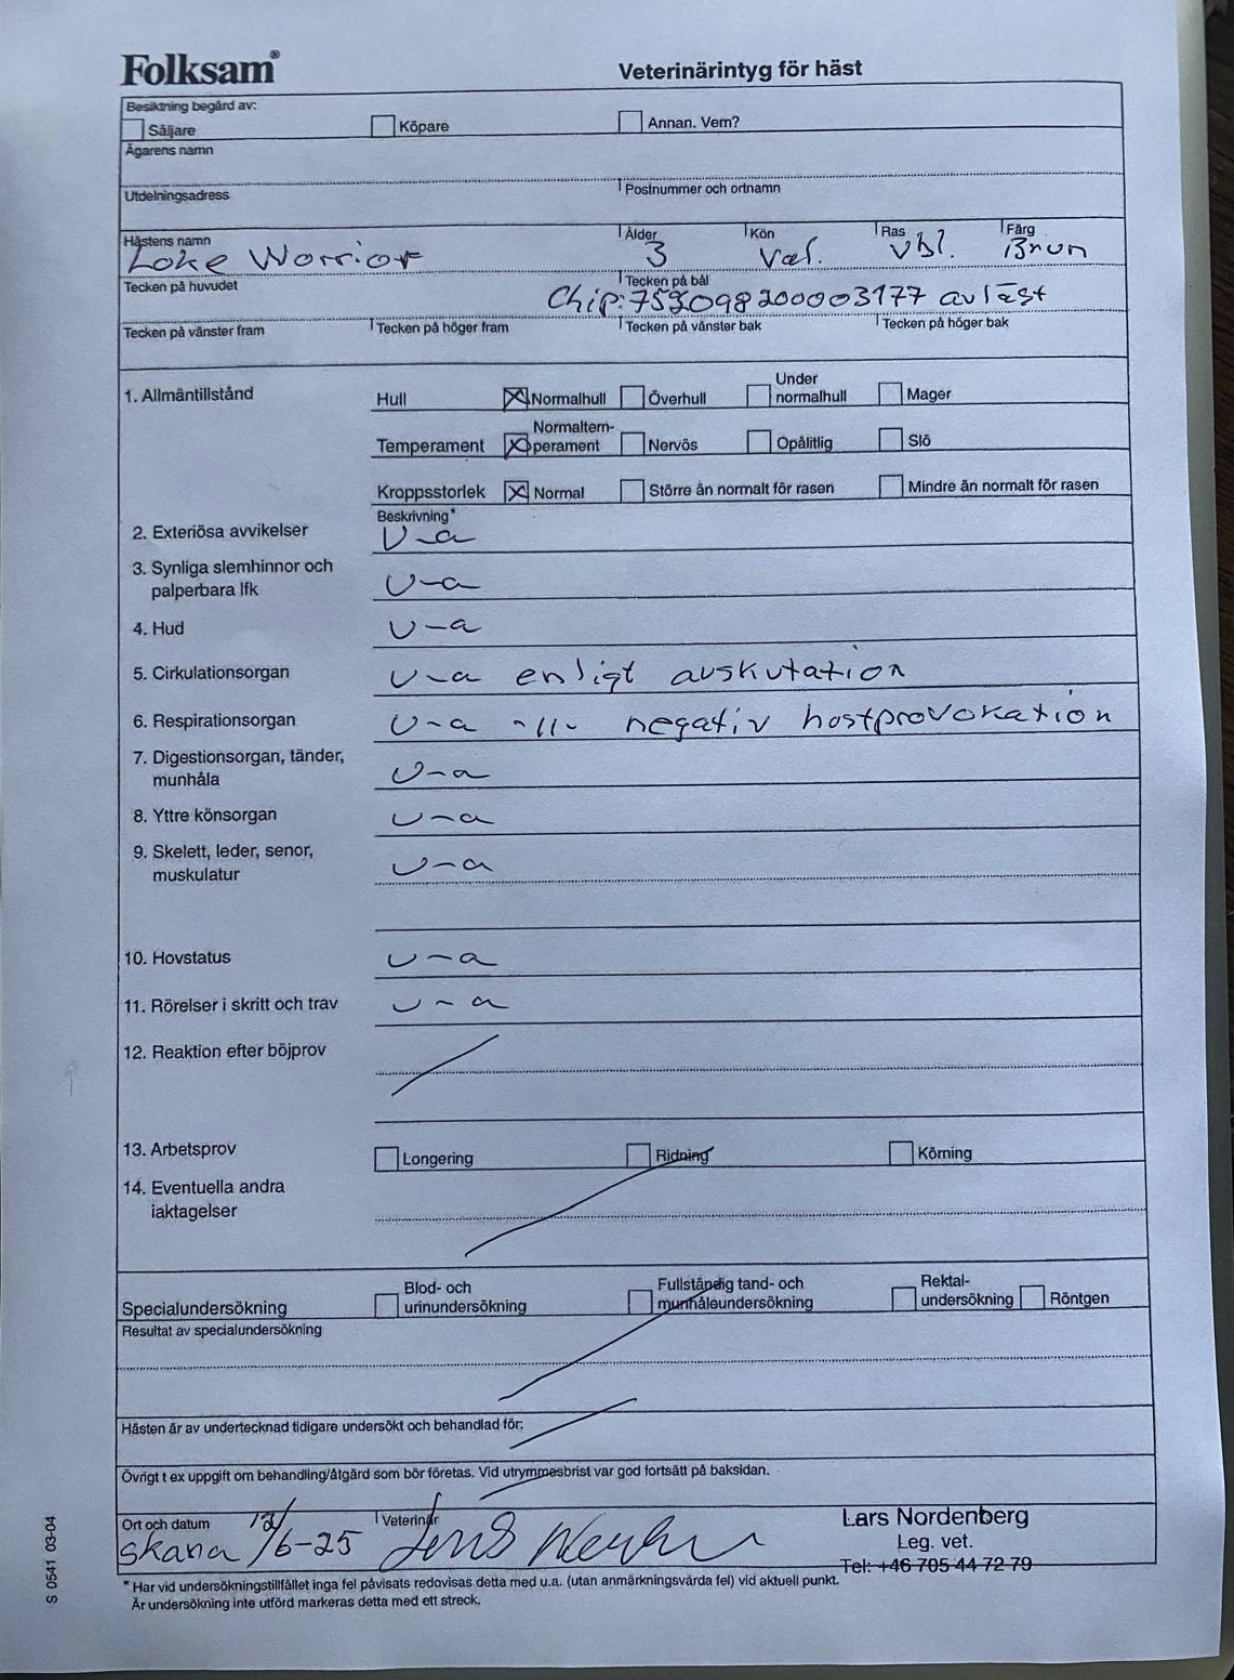 Folksam®
Veterinärintyg för häst
Besiktning begärd av:
Säljare Köpare Annan. Vem?
Ägarens namn
Utdelningsadress Postnummer och ortnamn
Hästens namn Ålder Kön Ras Färg
Loke Worrior 3 Val. vbl. Brun
Tecken på huvudet Tecken på bål
Chip: 752098200003177 avläst
Tecken på vänster fram Tecken på höger fram Tecken på vänster bak Tecken på höger bak
1. Allmäntillstånd Hull Normalhull Överhull Under normalhull Mager
Temperament Normaltem-perament Nervös Opålitlig Slö
Kroppsstorlek Normal Större än normalt för rasen Mindre än normalt för rasen
Beskrivning*
2. Exteriösa avvikelser U-a
3. Synliga slemhinnor och
palperbara lfk U-a
4. Hud U-a
5. Cirkulationsorgan U-a enligt auskutation
6. Respirationsorgan U-a -11- negativ hostprovokation
7. Digestionsorgan, tänder,
munhåla U-a
8. Yttre könsorgan U-a
9. Skelett, leder, senor,
muskulatur U-a
10. Hovstatus U-a
11. Rörelser i skritt och trav U-a
12. Reaktion efter böjprov
13. Arbetsprov Longering Ridning Körning
14. Eventuella andra
iaktagelser
Specialundersökning Blod- och urinundersökning Fullständig tand- och munhåleundersökning Rektal-undersökning Röntgen
Resultat av specialundersökning
Hästen är av undertecknad tidigare undersökt och behandlad för:
Övrigt t ex uppgift om behandling/åtgärd som bör företas. Vid utrymmesbrist var god fortsätt på baksidan.
Ort och datum Veterinär
Skara 12/6-25
Lars Nordenberg
Leg. vet.
Tel: +46 705 44 72 79
* Har vid undersökningstillfället inga fel påvisats redovisas detta med u.a. (utan anmärkningsvärda fel) vid aktuell punkt.
Är undersökning inte utförd markeras detta med ett streck.
S 0541 03-04